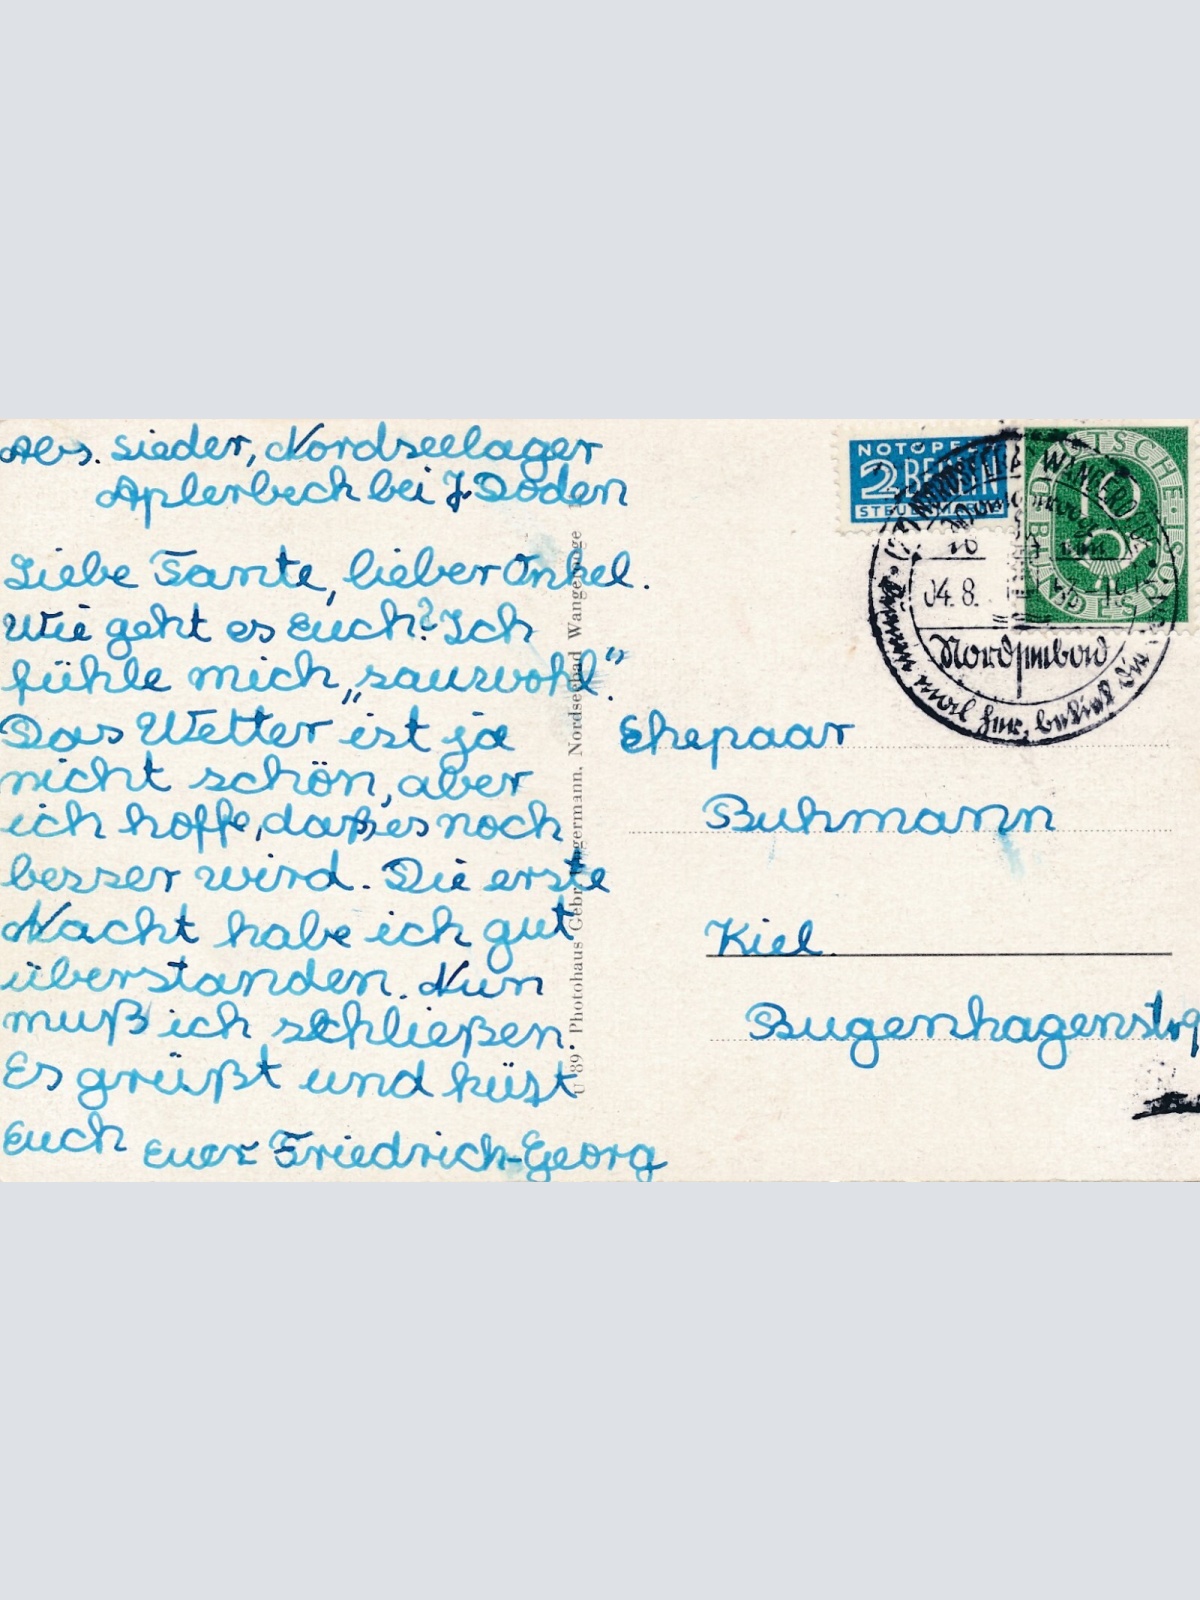 Abs. Sieder, Nordseelager
Aplerbeck bei J. Doden
Liebe Tante, lieber Onkel.
Wie geht es Euch? Ich
fühle mich „sauwohl“.
Das Wetter ist ja
nicht schön, aber
ich hoffe, daß es noch
besser wird. Die erste
Nacht habe ich gut
überstanden. Nun
muß ich schließen.
Es grüßt und küßt
Euch Euer Friedrich-Georg
U 89 Photohaus Gebr. Angermann, Nordseebad Wangerooge
NOTOPFER
2 BERLIN
STEUERMARKE
DEUTSCHE BUNDESPOST
10
NORDSEEBAD WANGEROOGE
04.8.
Nordseebad
Ehepaar
Buhmann
Kiel.
Bugenhagenstr 9